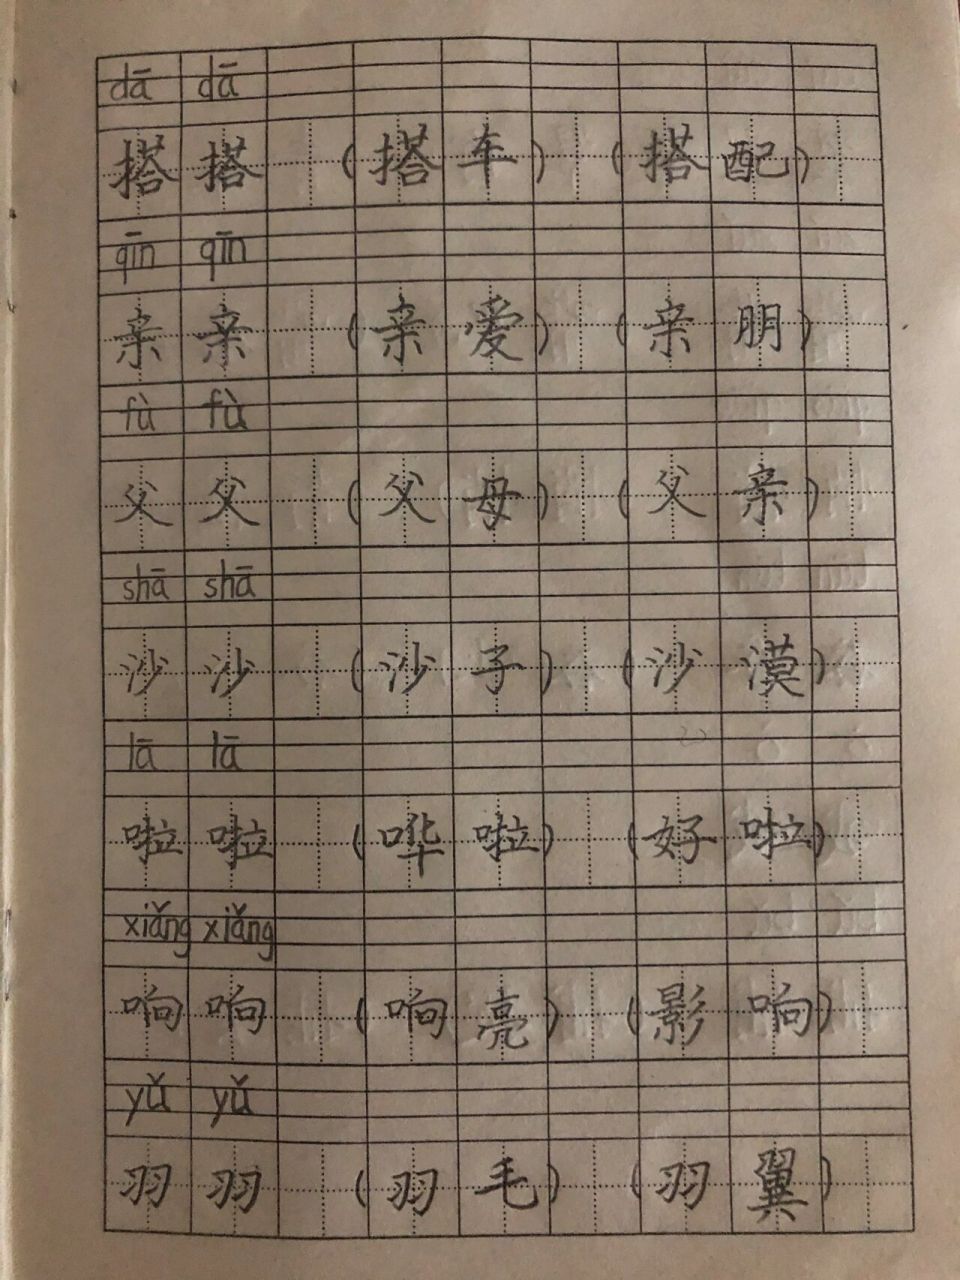 dā dā
搭 搭 (搭车) (搭配)
qīn qīn
亲 亲 (亲爱) (亲朋)
fù fù
父 父 (父母) (父亲)
shā shā
沙 沙 (沙子) (沙漠)
lā lā
啦 啦 (哗啦) (好啦)
xiǎng xiǎng
响 响 (响亮) (影响)
yǔ yǔ
羽 羽 (羽毛) (羽翼)